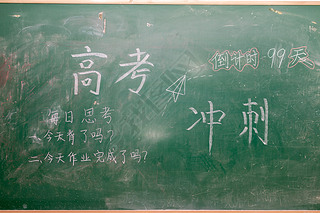 高考
倒计时:99天
冲刺
每日思考
一.今天育了吗?
二.今天作业完成了吗?